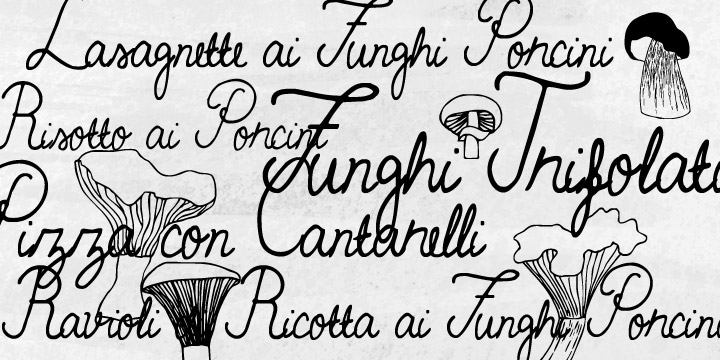 Lasagnette ai Funghi Porcini
Risotto ai Porcini
Funghi Trifolati
Pizza con Cantarelli
Ravioli di Ricotta ai Funghi Porcini